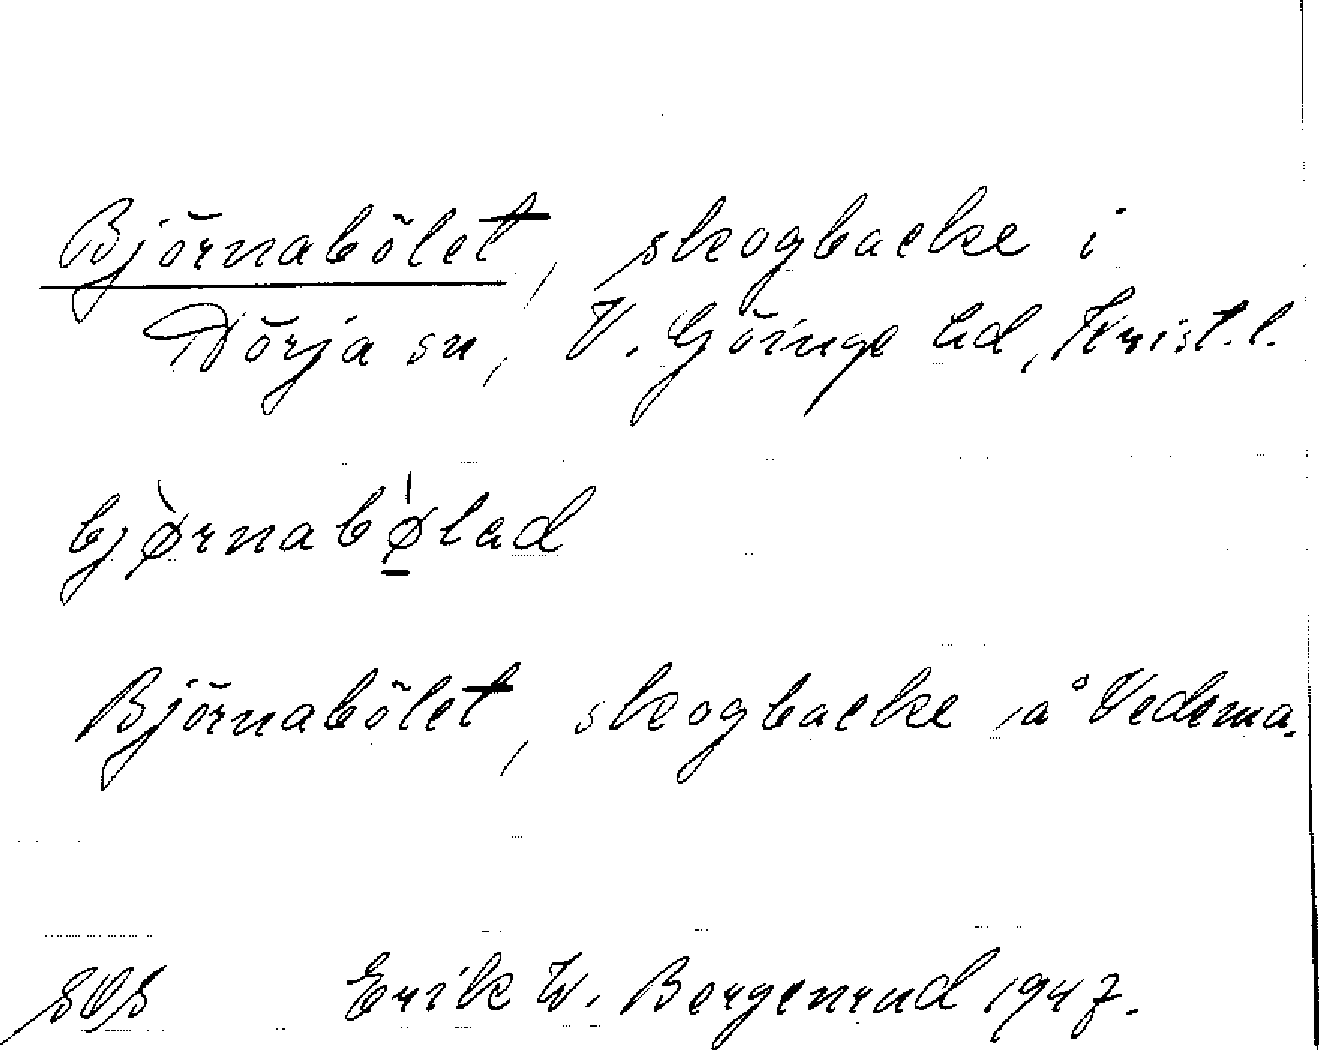 Björnabölet, skogbacke i
Dörja sn, V. Göinge hd, Krist. l.
bjø̀rnabø̠̀lad
Björnabölet, skogbacke å Vedema.
SOS Erik W. Bergenrud 1947.